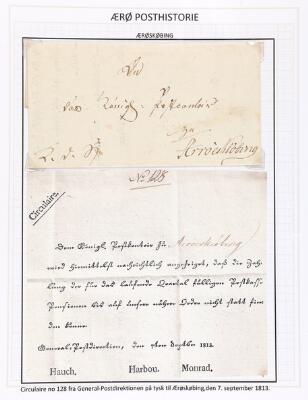 ÆRØ POSTHISTORIE
ÆRØSKØBING
An
das Königl. Postcomtoir
zu
K. D. S. Arröeskiöbing
No 128
Circulaire.
Dem Königl. Postcomtoir zu Arroeskiöbing
wird hiemittelst nachrichtlich angezeiget, daß die Zah-
lung der für das laufende Quartal fälligen Postcasse-
Pensionen bis auf unsere nähere Order nicht statt fin-
den könne.
General-Postdirection, den 7ten Septbr 1813.
Hauch. Harbou. Monrad.
Circulaire no 128 fra General-Postdirektionen på tysk til Ærøskøbing, den 7. september 1813.